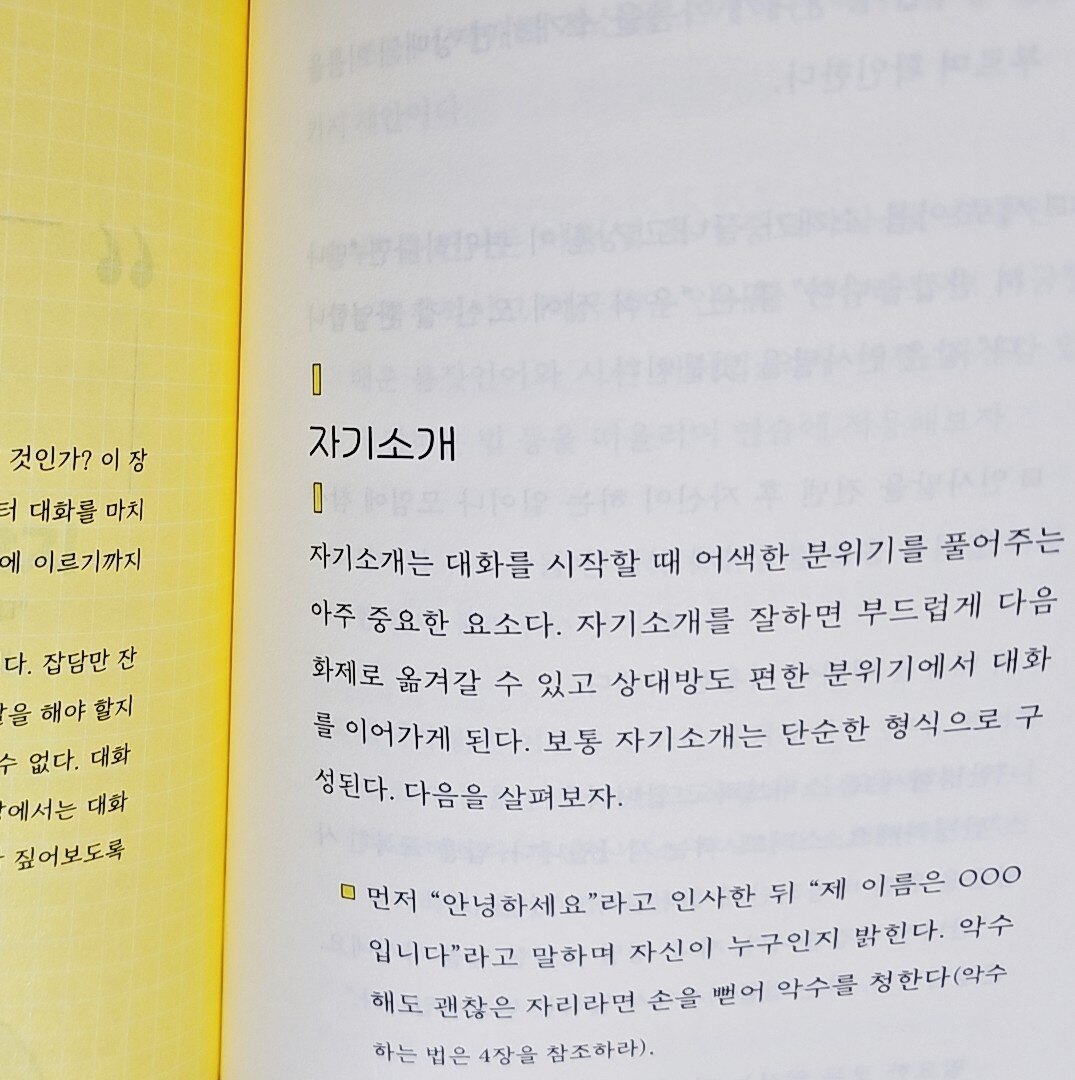 것인가? 이 장
터 대화를 마치
에 이르기까지
다. 잡담만 잔
을 해야 할지
수 없다. 대화
에서는 대화
짚어보도록
자기소개
자기소개는 대화를 시작할 때 어색한 분위기를 풀어주는
아주 중요한 요소다. 자기소개를 잘하면 부드럽게 다음
화제로 옮겨갈 수 있고 상대방도 편한 분위기에서 대화
를 이어가게 된다. 보통 자기소개는 단순한 형식으로 구
성된다. 다음을 살펴보자.
먼저 “안녕하세요”라고 인사한 뒤 “제 이름은 OOO
입니다”라고 말하며 자신이 누구인지 밝힌다. 악수
해도 괜찮은 자리라면 손을 뻗어 악수를 청한다(악수
하는 법은 4장을 참조하라).